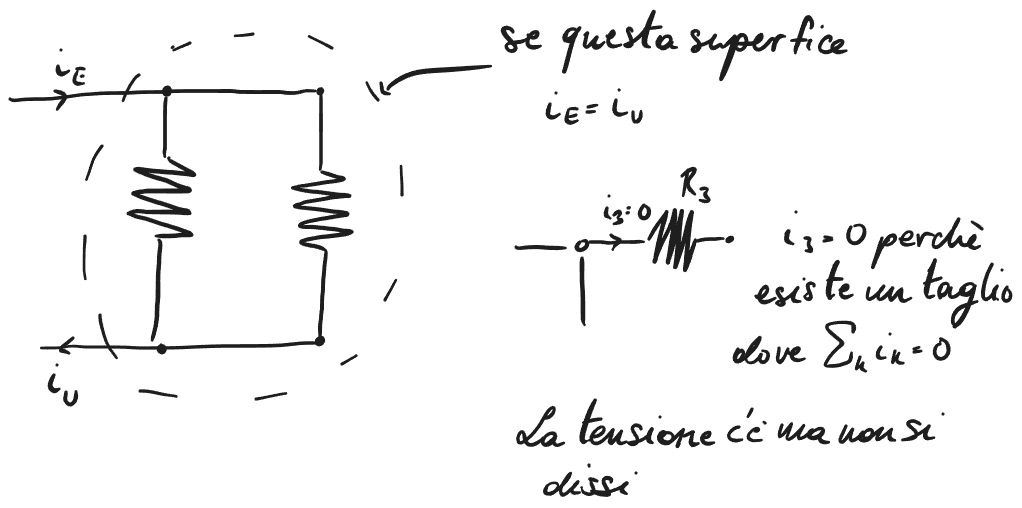 se questa superfice
i_E = i_U
i_E
R_3
i_3=0
i_3 = 0 perchè
esiste un taglio
dove ∑_k i_k = 0
i_U
La tensione c'è ma non si
dissi